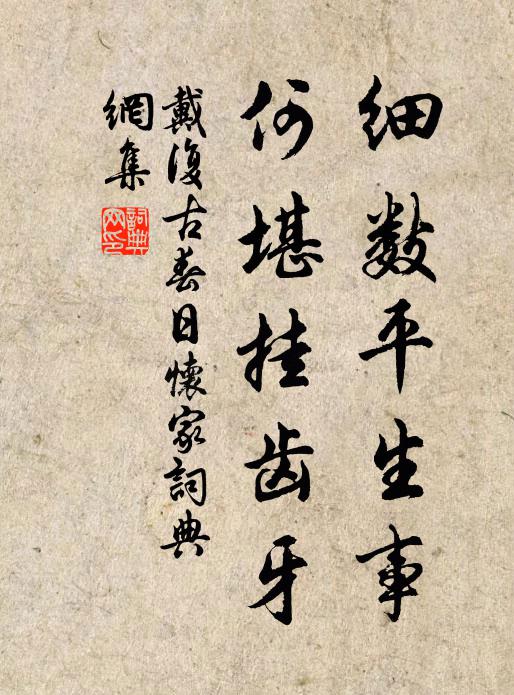 细数平生事
何堪挂齿牙
戴復古春日懷家詞典
網集
詞典網印